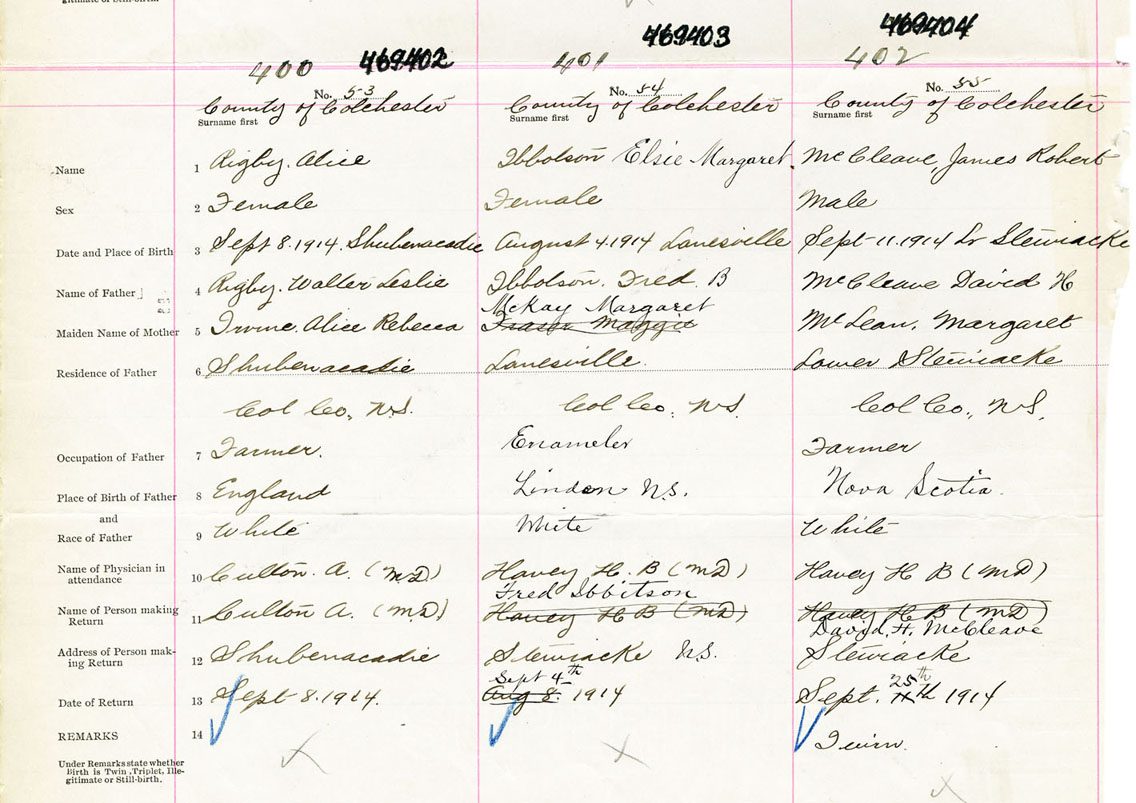 gitimate or Still-birth.
469402 469403 469404
400 401 402
No. 53 No. 54 No. 55
County of Colchester County of Colchester County of Colchester
Surname first Surname first Surname first
Name 1 Rigby. Alice Ibbolson Elsie Margaret. McCleave, James Robert
Sex 2 Female Female Male
Date and Place of Birth 3 Sept 8.1914, Shubenacadie August 4.1914 Lanesville Sept-11.1914 Lr Stewiacke
Name of Father 4 Rigby. Walter Leslie Ibbolson. Fred B McCleave David H
McKay Margaret
Maiden Name of Mother 5 Irvine. Alice Rebecca Fraser Maggie McLean. Margaret
Residence of Father 6 Shubenacadie Lanesville. Lower Stewiacke
Col Co, N.S. Col Co, N.S. Col Co., N.S.
Occupation of Father 7 Farmer. Enameler Farmer
Place of Birth of Father 8 England Linden N.S. Nova Scotia.
and
Race of Father 9 White White White
Name of Physician in
attendance 10 Culton. A. (MD) Havey H. B (MD) Havey H B (MD)
Fred Ibbitson
Name of Person making
Return 11 Culton A. (MD) Havey H B (MD) Havey H B (MD)
David. H. McCleave
Address of Person mak-
ing Return 12 Shubenacadie Stewiacke N.S. Stewiacke
Sept 4th 25th
Date of Return 13 Sept 8.1914. Aug 8. 1914 Sept. 11th 1914
REMARKS 14 Twin.
Under Remarks state whether
Birth is Twin, Triplet, Ille-
gitimate or Still-birth.